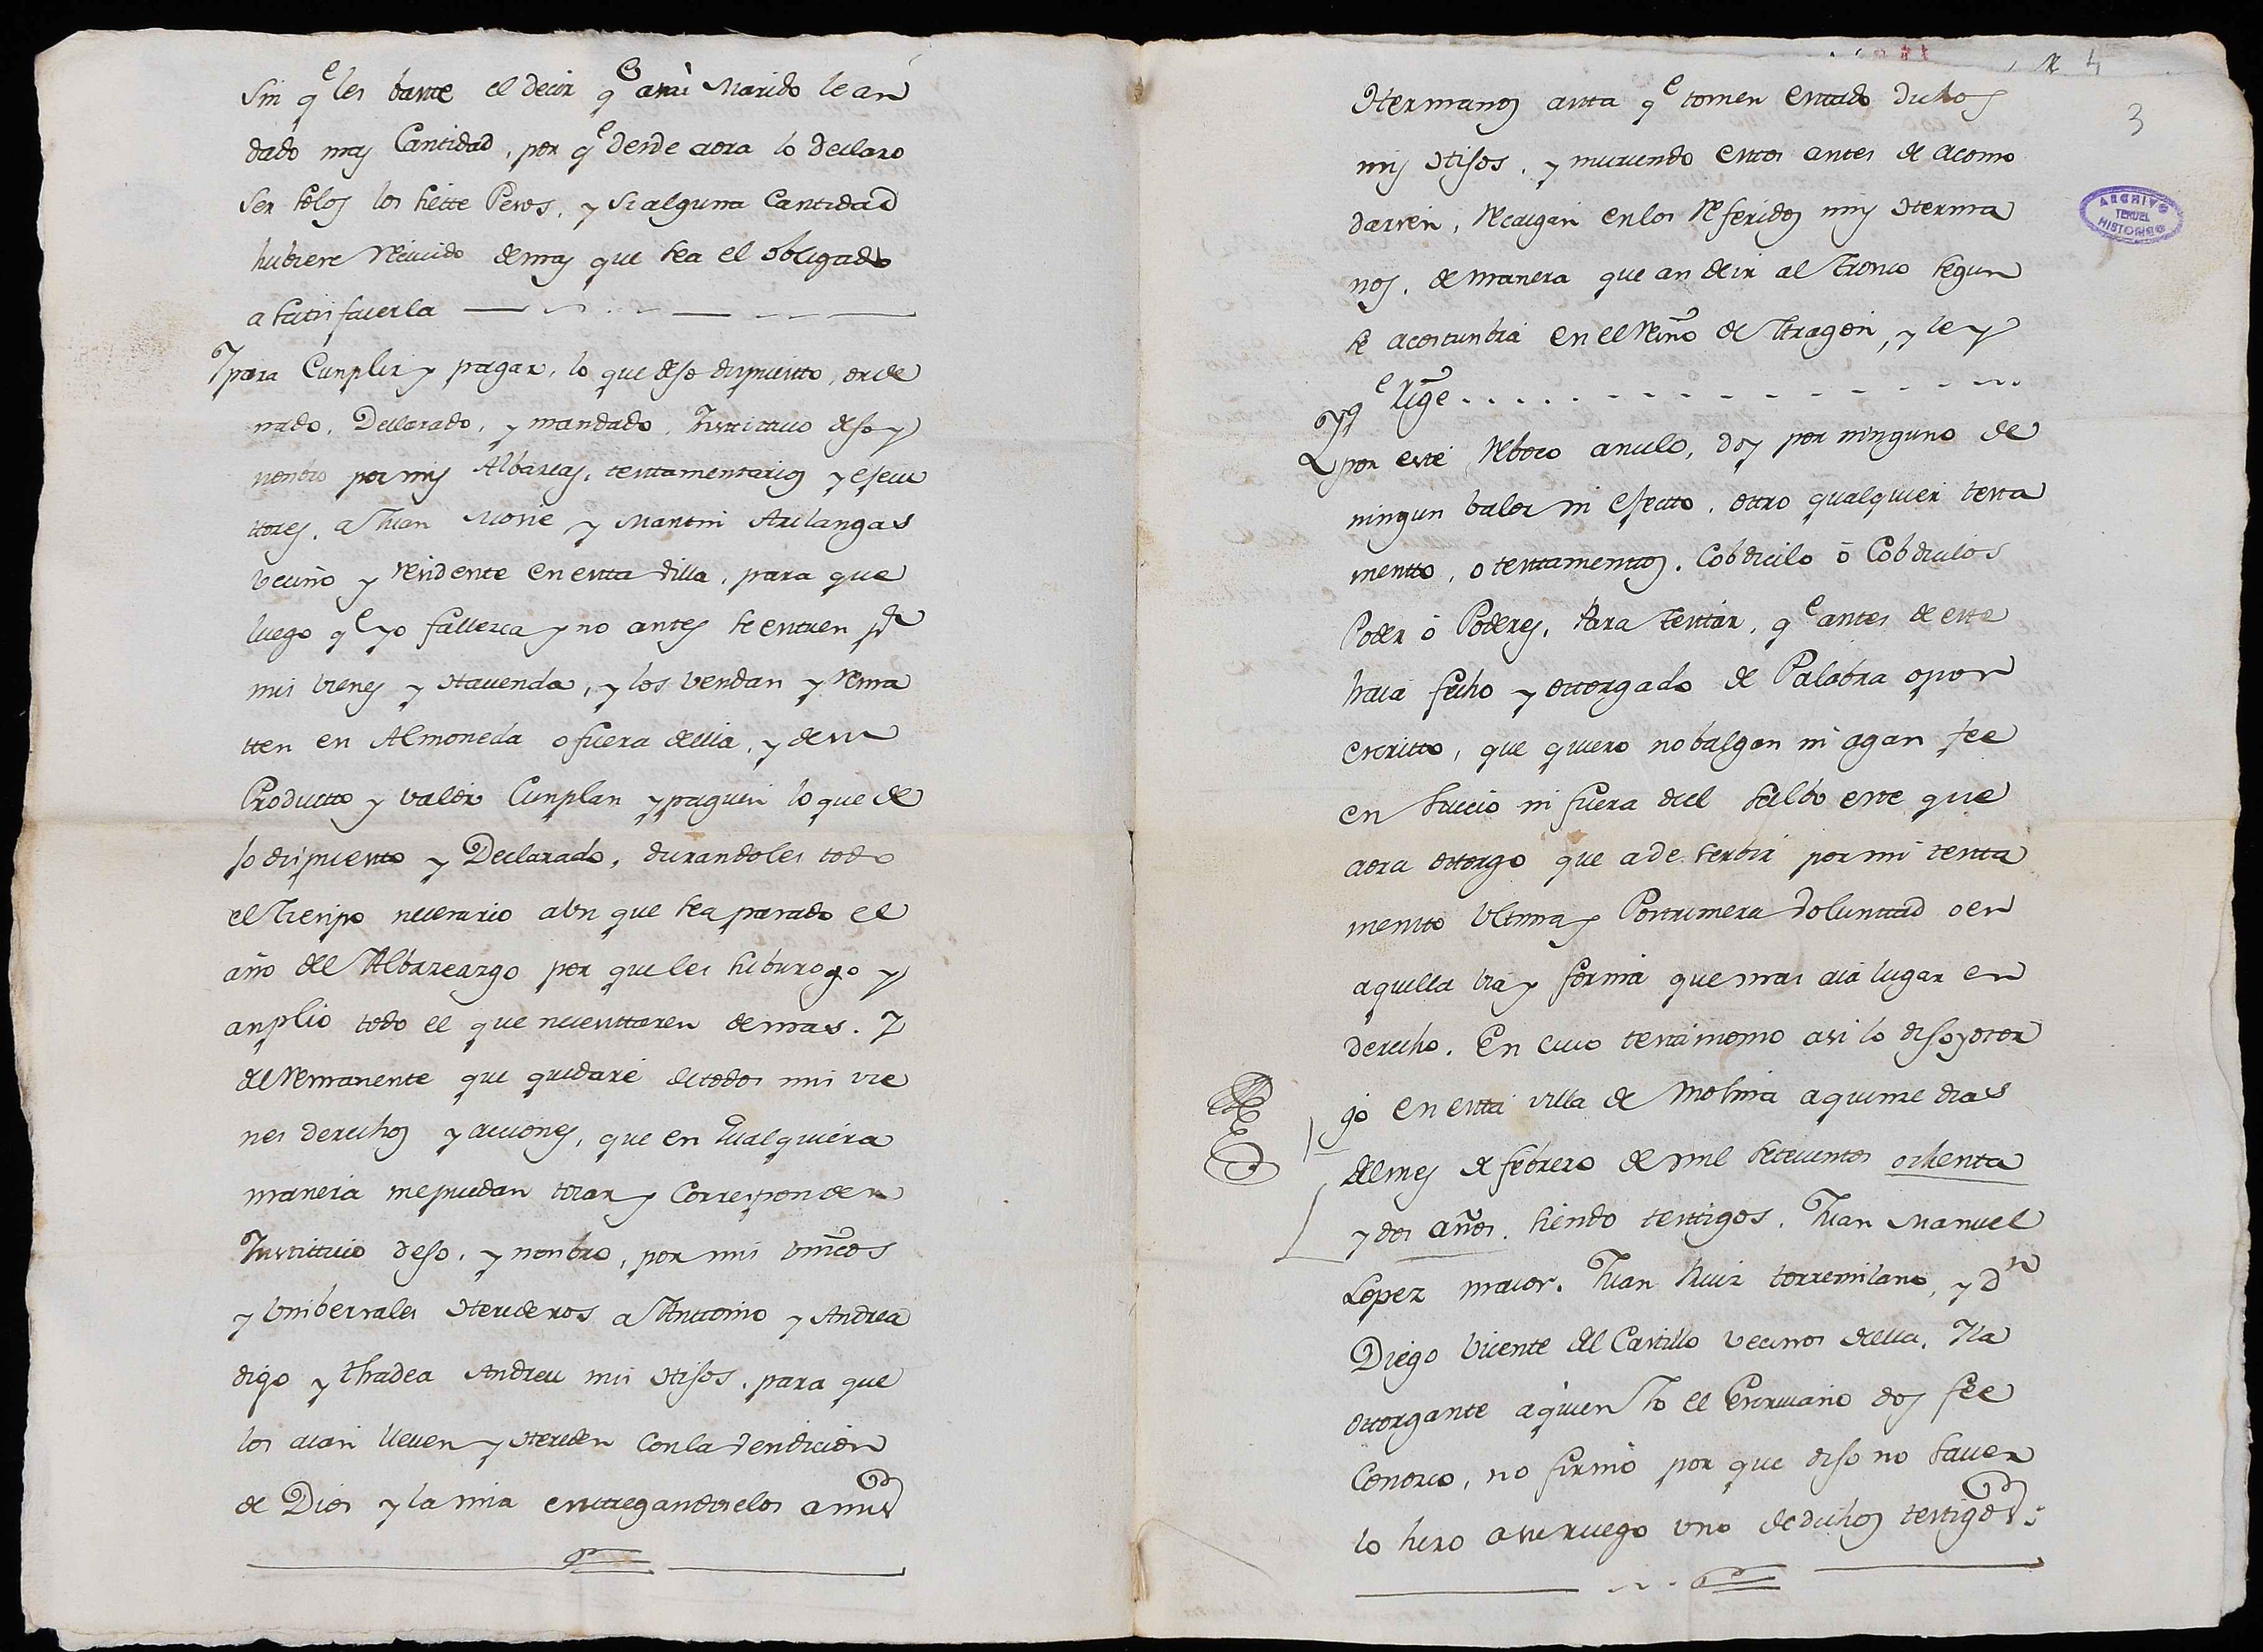 Sin q.e les baste el decir q.e a mi Marido le an
dado mas Cantidad, por q.e desde aora lo declaro
ser solos los siette Pesos, y si alguna Cantidad
hubiere recivido demas que sea el obligado
a satisfacerla
Y para Cunplir y pagar, lo que dejo dispuesto, orde
nado, Declarado, y mandado, Instittuio dejo y
nonbro por mis Albaceas, testamentarios y ejecu
ttores, a Juan y Martin Arilangas
vecino y residente en esta villa, para que
luego q.e yo fallezca y no antes se entren p.r
mis vienes y Hacienda, y los vendan y rema
tten en Almoneda o fuera della, y de su
Productto y valor Cunplan y paguen lo que de
jo dispuesto y Declarado, durandoles todo
el Tienpo necesario aun que sea pasado el
año del Albaceazgo por que les suburogo y
anplio todo el que necesittaren demas. Y
del remanente que quedare de todos mis vie
nes derechos y acciones, que en qualquiera
manera me puedan tocar y Corresponder
Instittuio dejo, y nonbro, por mis unicos
y Unibersales Herederos a Anttonio y Andrea
digo y thadea Andreu mis Hijos, para que
los aian lleven y Hereden con la vendicion
de Dios y la mia enttregandoselos a mis
4
3
Hermanos asta q.e tomen estado dichos
mis Hijos, y muriendo estos antes de acomo
darsen, recaigan en los referidos mis Herma
nos, de manera que an de ir al Tronco segun
se acostunbra en el reino de Aragon, y ley
q.e rige
Y por este reboco anulo, doy por ninguno de
ningun balor ni efectto, otro qualquier testa
mentto, o testamenttos, Cobdicilo ó Cobdicilos
Poder ó Poderes, Para testar, q.e antes de este
haia fecho y ottorgado de Palabra o por
escritto, que quiero no balgan ni agan fee
en Juicio ni fuera del salbo este que
aora ottorgo que a de serbir por mi testa
mentto Ultima y Postrimera Voluntad o en
aquella via y forma que mas aia lugar en
derecho. En cuio testimonio asi lo dijo y otor
gó en esta villa de Molina a quince dias
del mes de febrero de mil setecientos ochenta
y dos años. siendo testtigos, Juan Manuel
Lopez maior, Juan Ruiz torremilano, y D.n
Diego Vicente del Castillo vecinos della. Y la
ottorgante a quien Yo el Escrivano doy fee
Conozco, no firmó por que dijo no saver
lo hizo a su ruego uno de dichos testigos
ARCHIVO
TERUEL
HISTORICO